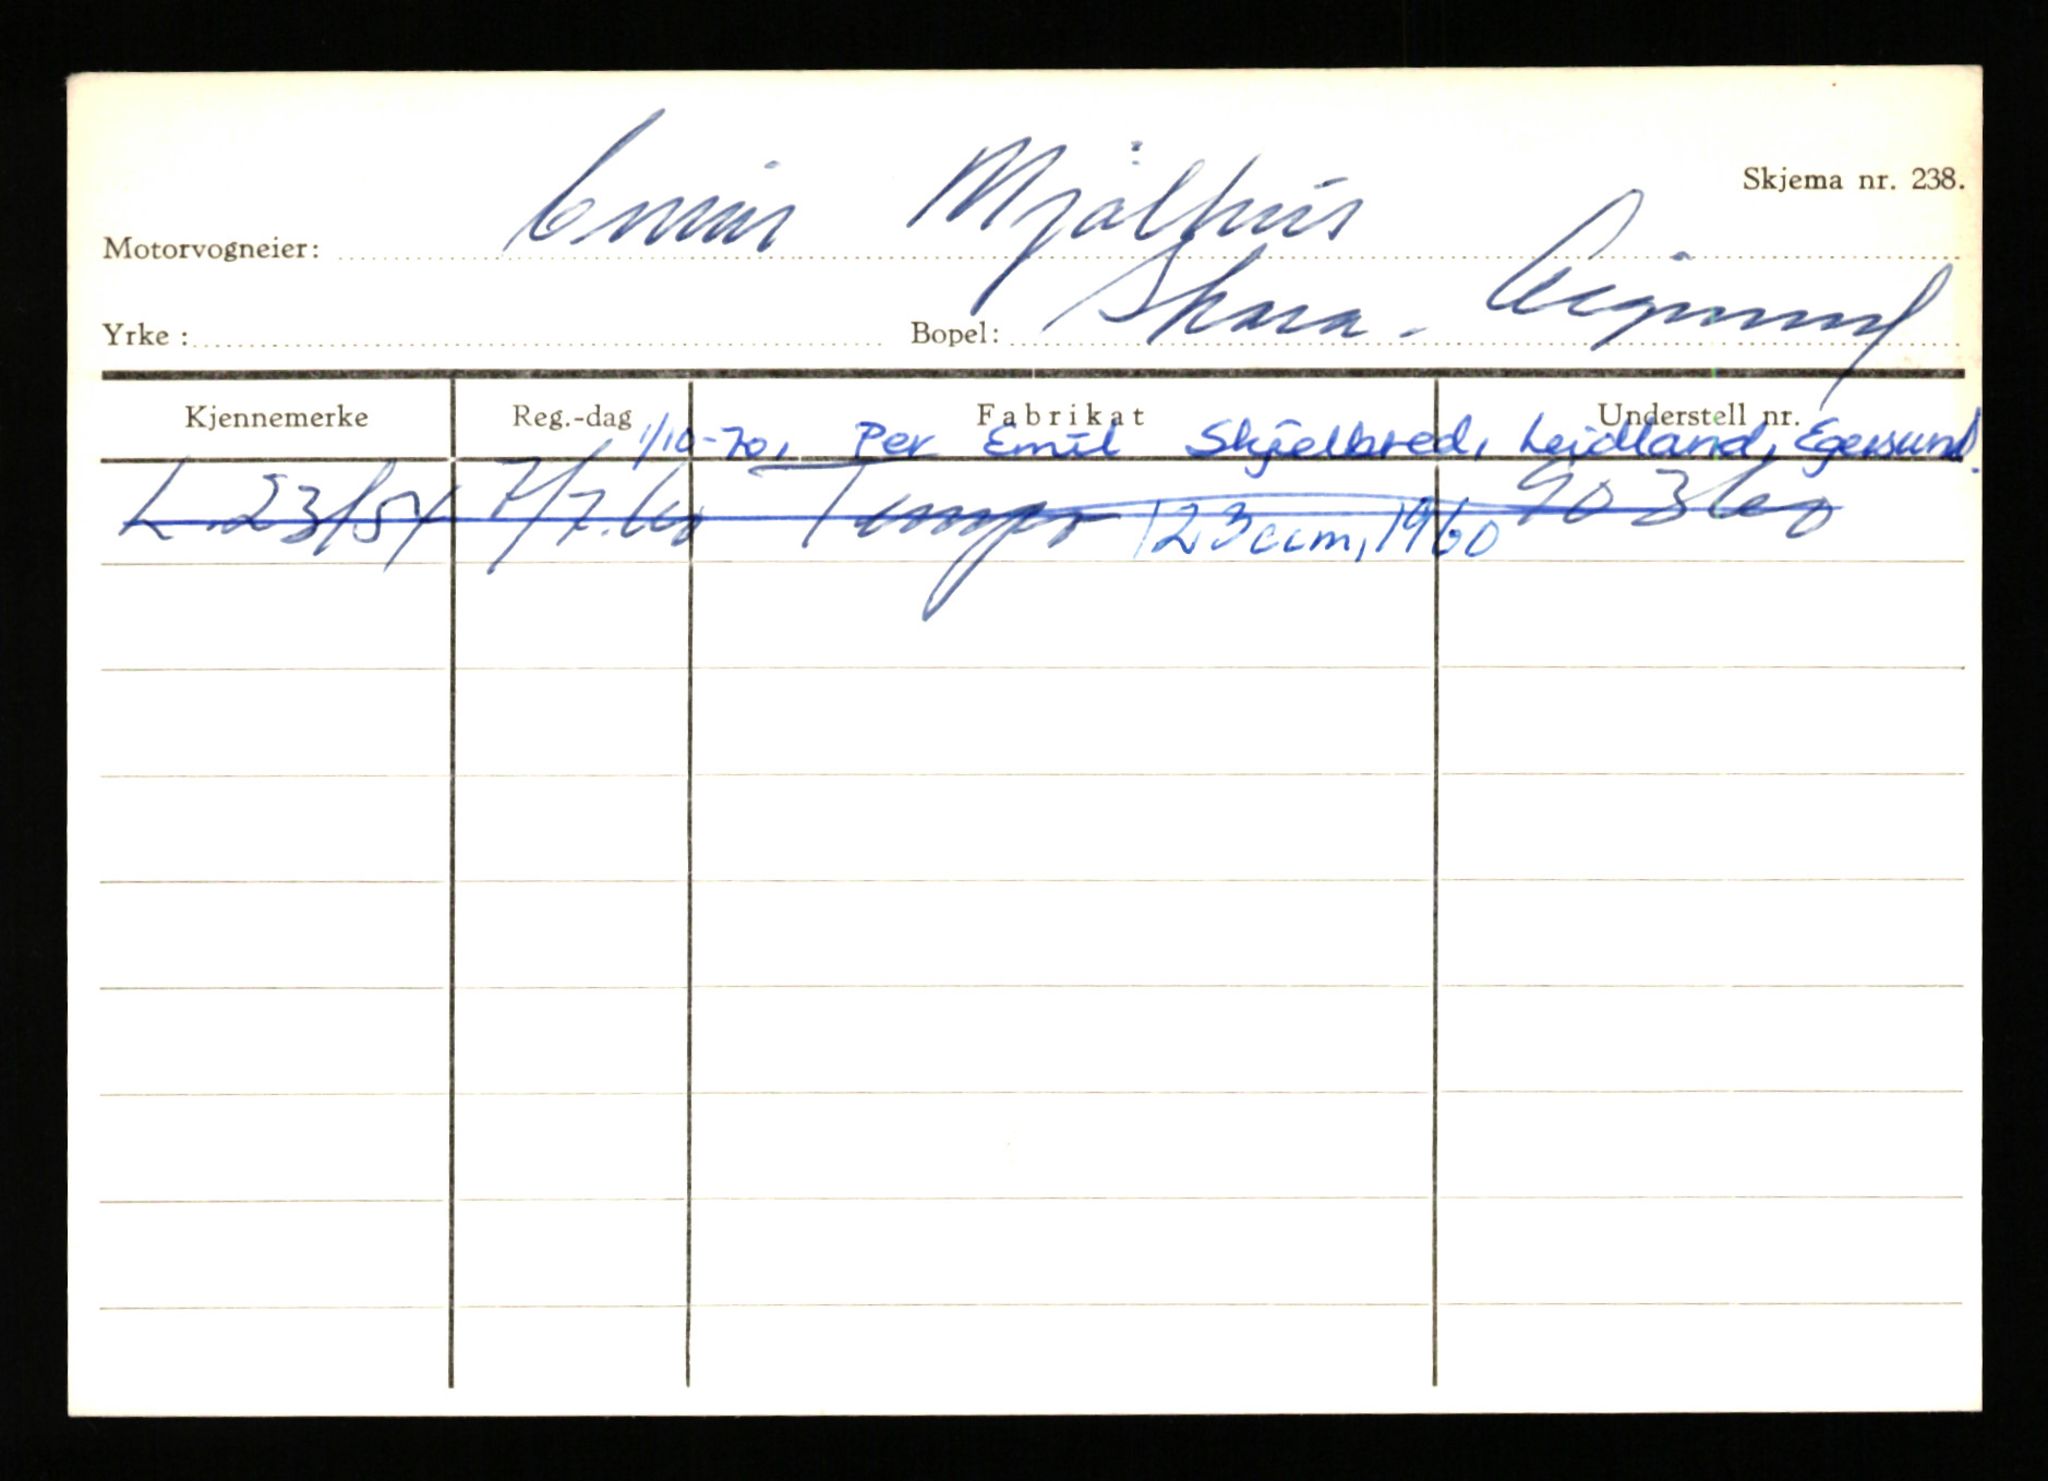 Skjema nr. 238.
Motorvogneier: Einar Mjølhus
Yrke: Bopel: Skara. Eigersund
Kjennemerke Reg.-dag Fabrikat Understell nr.
1/10-70, Per Emil Skjelbred, Leidland, Egersund.
L.23151 7/7.60 Tempo 123 ccm, 1960 903660